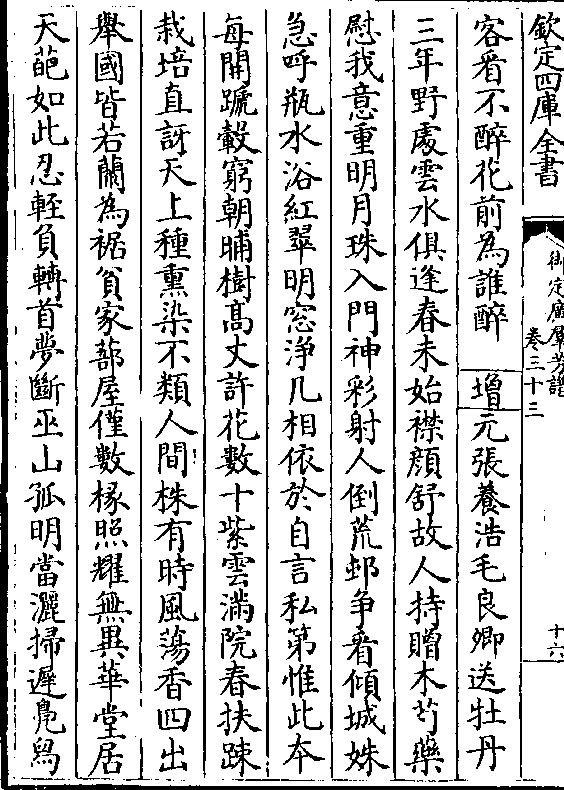 欽定四庫全書
御定廣羣芳譜
卷三十三
十六
客看不醉花前為誰醉 增元張養浩毛良卿送牡丹
三年野處雲水俱逢春未始襟顔舒故人持贈木芍藥
慰我意重明月珠入門神彩射人倒荒邨争看傾城姝
急呼瓶水浴紅翠明窓浄几相依於自言私第惟此本
每開蹏轂窮朝晡樹髙丈許花數十紫雲滿院春扶踈
栽培直訝天上種熏染不類人間株有時風蕩香四出
舉國皆若蘭為裾貧家蔀屋僅數椽照耀無異華堂居
天葩如此忍輕負轉首夢斷巫山孤明當灑掃遲鳬舄